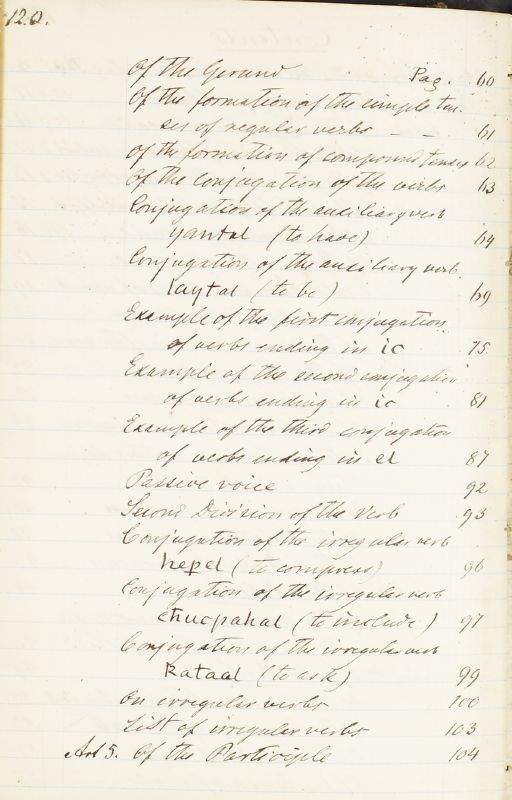 120.
Of the Gerund Pag. 60
Of the formation of the simple ten-
ses of regular verbs - - 61
Of the formation of compound tenses 62
Of the Conjugation of the verbs 63
Conjugation of the auxiliary verb
yantal (to have) 64
Conjugation of the auxiliary verb
laytal (to be) 69
Example of the first conjugation
of verbs ending in ic 75.
Example of the second conjugation
of verbs ending in ic 81
Example of the third conjugation
of verbs ending in el 87
Passive voice 92
Second Division of the Verb 93
Conjugation of the irregular verb
hepel (to compress) 96
Conjugation of the irregular verb
chucpahal (to include) 97
Conjugation of the irregular verb
Kataal (to ask) 99
On irregular verbs 100
List of irregular verbs 103
Art 5. Of the Participle 104